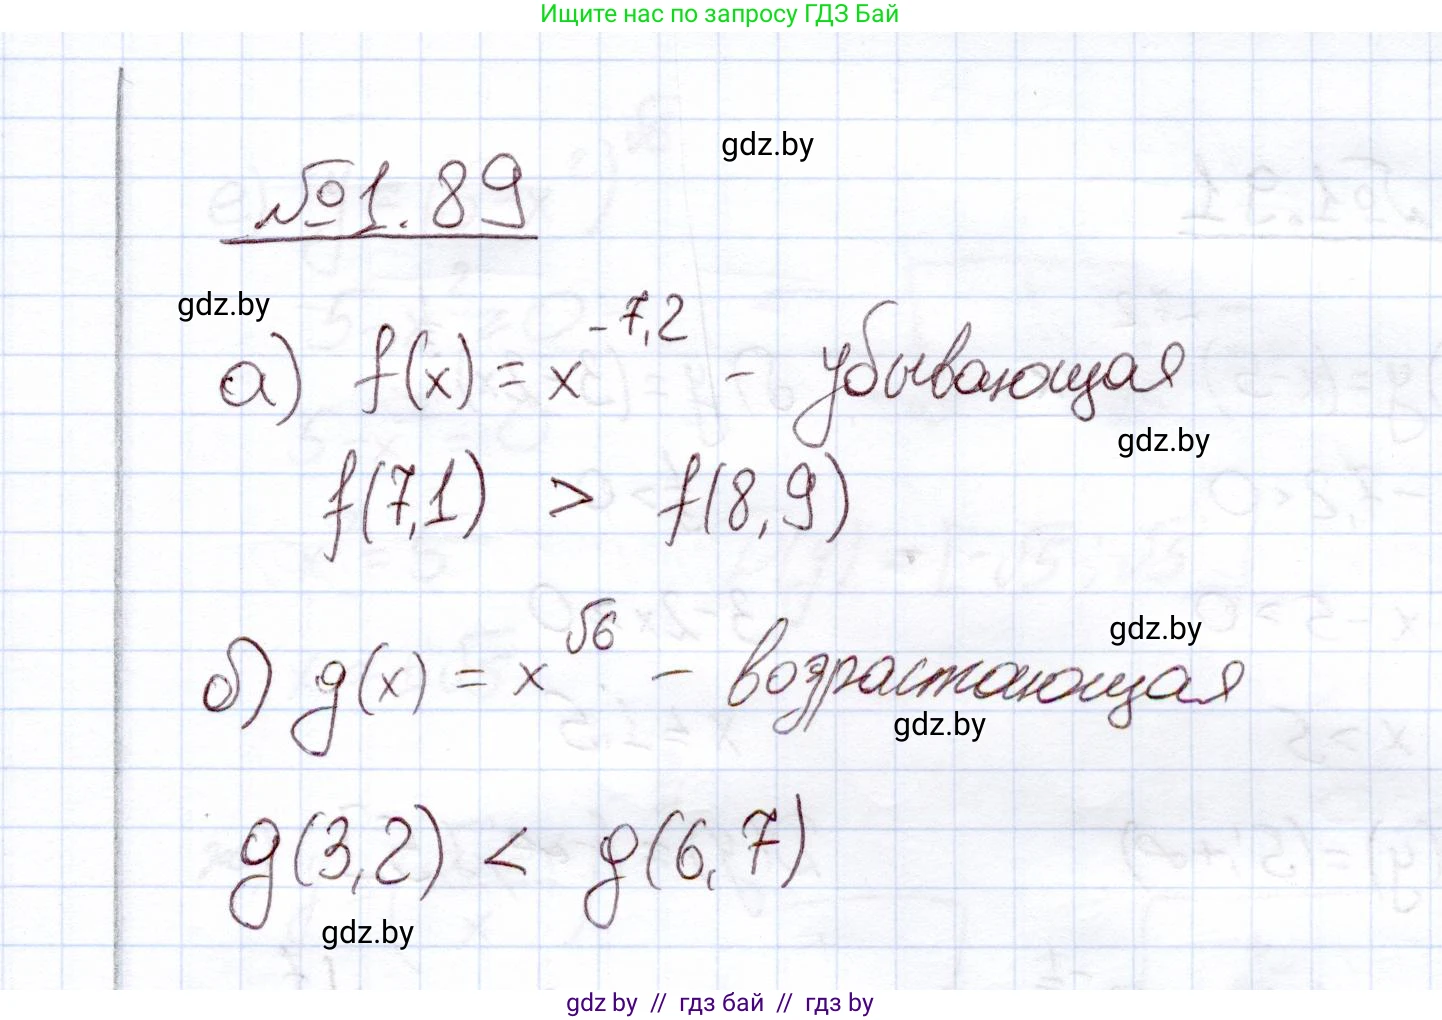 Ищите нас по запросу ГДЗ Бай
gdz.by
№1.89
gdz.by
а) f(x) = x^{-7,2} - убывающая
gdz.by
f(7,1) > f(8,9)
gdz.by
б) g(x) = x^{√6} - возрастающая
gdz.by
g(3,2) < g(6,7)
gdz.by
gdz by // гдз бай // гдз by